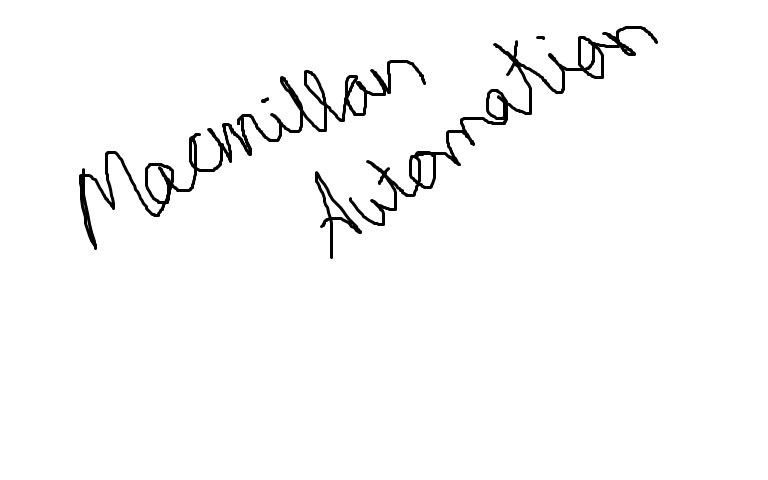 Macmillan
Automation